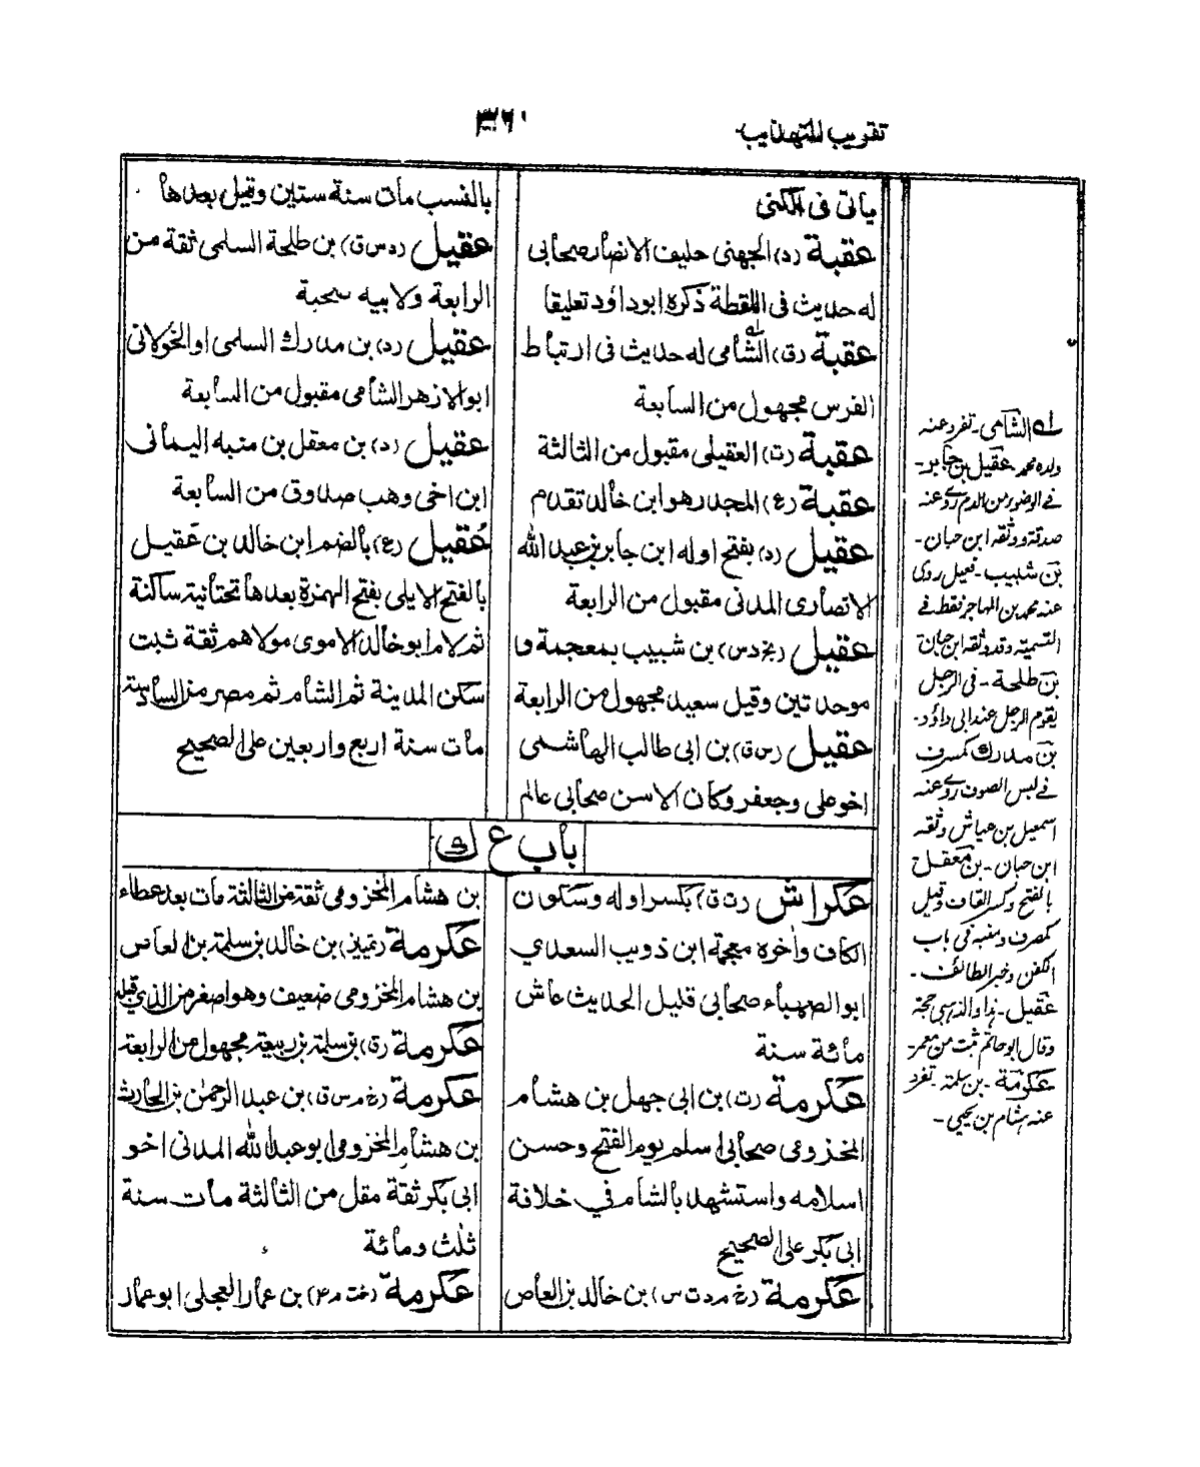 تقريب التهذيب
٣٦٠
يأتى فى الكنى
عقبة (د) الجهنى حليف الانصار صحابى
له حديث فى اللقطة ذكره ابوداؤد تعليقا
عقبة (ق) الشامى له حديث فى ارتباط
الفرس مجهول من السابعة
عقبة (ت) العقيلى مقبول من الثالثة
عقبة (ع) المجدر هو ابن خالد تقدم
عقيل (د) بفتح اوله ابن جابر بن عبد الله
الانصارى المدنى مقبول من الرابعة
عقيل (بخ د س) بن شبيب بمعجمة و
موحدتين وقيل سعيد مجهول من الرابعة
عقيل (س ق) بن ابى طالب الهاشمى
اخو على وجعفر وكان الاسن صحابى عالم
بالنسب مات سنة ستين وقيل بعدها
عقيل (د س ق) بن طلحة السلمى ثقة من
الرابعة ولابيه صحبة
عقيل (د) بن مدرك السلمى او الخولانى
ابو الازهر الشامى مقبول من السابعة
عقيل (د) بن معقل بن منبه اليمانى
ابن اخى وهب صدوق من السابعة
عُقيل (ع) بالضم ابن خالد بن عَقيل
بالفتح الايلى بفتح الهمزة بعدها تحتانية ساكنة
ثم لام ابو خالد الاموى مولاهم ثقة ثبت
سكن المدينة ثم الشام ثم مصر من السادسة
مات سنة اربع واربعين على الصحيح
باب ع ك
عكراش (ت ق) بكسر اوله وسكون
الكاف وأخره معجمة ابن ذويب السعدي
ابو الصهباء صحابى قليل الحديث عاش
مائة سنة
عكرمة (ت) بن ابى جهل بن هشام
المخزومى صحابى اسلم يوم الفتح وحسن
اسلامه واستشهد بالشام في خلافة
ابى بكر على الصحيح
عكرمة (خ م د ت س) بن خالد بن العاص
بن هشام المخزومى ثقة من الثالثة مات بعد عطاء
عكرمة (تمييز) بن خالد بن سلمة بن العاص
بن هشام المخزومى ضعيف وهو اصغر من الذي قبله
عكرمة (ق) بن سلمة بن ربيعة مجهول من الرابعة
عكرمة (خ م س ق) بن عبد الرحمٰن بن الحارث
بن هشام المخزومى ابو عبد الله المدنى اخو
ابى بكر ثقة مقل من الثالثة مات سنة
ثلٰث ومائة
عكرمة (خت م ٤) بن عمار العجلى ابو عمار
له الشامى - تفرد عنه
ولده محمد عقيل بن جابر -
فى الوضوء من الدم روى عنه
صدقة ووثقه ابن حبان -
بن شبيب - فعيل روى
عنه محمد بن المهاجر فقط فى
التسمية وقد وثقه ابن حبان
بن طلحة - فى الرجل
يقوم الرجل عند ابى داؤد -
بن مدرك كمسرف
فى لبس الصوف روى عنه
اسمعيل بن عياش وثقه
ابن حبان - بن معقل
بالفتح وكسر القاف وقيل
كمصرف ومنبه فى باب
الكفن وخبر الطائف -
عقيل - ذا والذهبى حجة
وقال ابو حاتم ثبت من معمر -
عكرمة - بن سلمة - تفرد
عنه هشام بن يحيى -